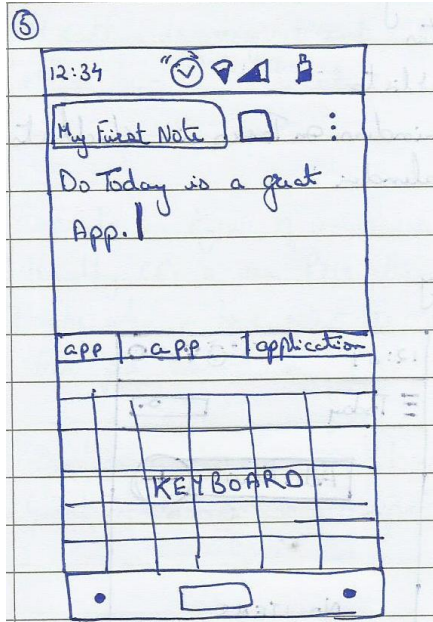 5
12:34
My First Note
Do Today is a great
App.
app a p p application
KEYBOARD